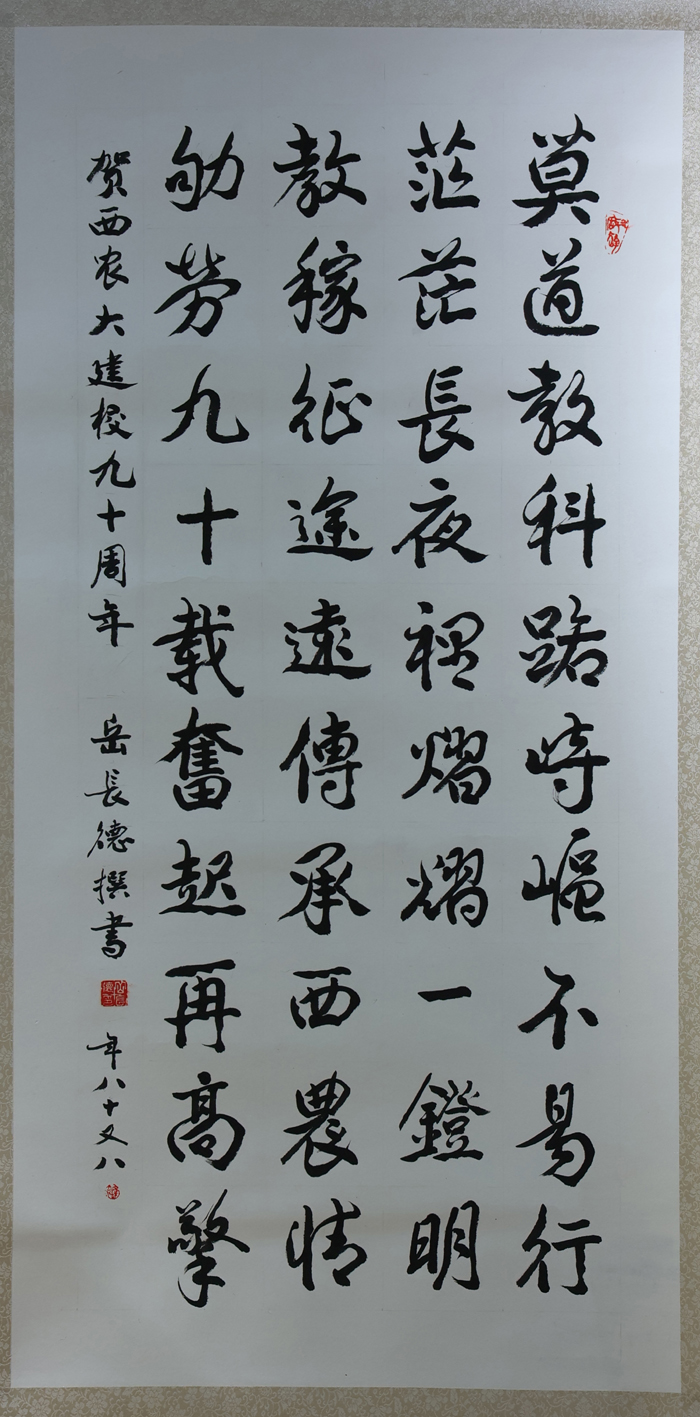 莫道教科路崎嶇不易行
茫茫長夜裡熠熠一鐙明
教稼征途遠傳承西農情
劬勞九十載奮起再高擎
贺西农大建校九十周年 岳長德撰书 年八十又八